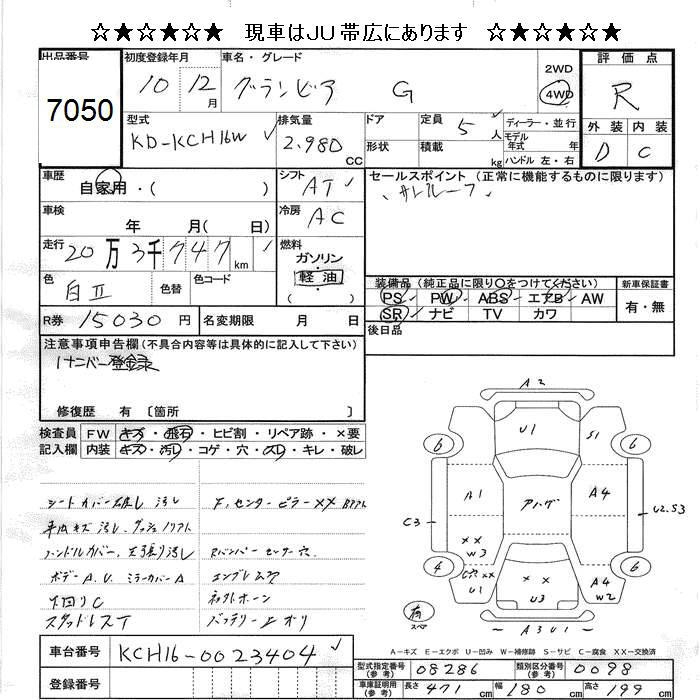 ☆★☆★☆★ 現車はJU帯広にあります ☆★☆★☆★
出品番号
7050
初度登録年月
10 12月
車名・グレード
グランビア G
2WD
4WD
評価点
R
外装 内装
D C
型式
KD-KCH16W
排気量
2.980 CC
ドア
形状
定員 5人
積載 kg
ディーラー・並行
モデル年式 年
ハンドル 左・右
車歴
自家用・( )
シフト AT
車検
年 月( 日)
冷房 AC
走行
20万3千747km
燃料
ガソリン
軽油
色 白Ⅱ
色替
色コード
R券 15030円
名変期限 月 日
セールスポイント(正常に機能するものに限ります)
サンルーフ
装備品(純正品に限り○をつけてください)
PS PW ABS エアB AW
SR ナビ TV カワ
新車保証書
有・無
後日品
注意事項申告欄(不具合内容等は具体的に記入して下さい)
1ナンバー登録
修復歴 有〔箇所 〕
検査員
記入欄
FW キズ・飛石・ヒビ割・リペア跡・×要
内装 キズ・汚レ・コゲ・穴・スレ・キレ・破レ
シートカバー破レ 汚レ
ハンドルカバー、天張り汚レ
ボデーA.U ミラーカバーA
下回りC
スタッドレスT
F.センターピラー××
Rバンパーセンサー穴
エンブレム欠
バッテリー上ガリ
A2
U1
S1
6 6
A1
アハゲ
A4
C3
U2.S3
××
W3
4
穴××
U1
××
U3
A4
W2
6
有
スペア
A3U1
A-キズ E-エクボ U-凹み W-補修跡 S-サビ C-腐食 XX-交換済
車台番号 KCH16-0023404
登録番号
型式指定番号(参考) 08286
類別区分番号(参考) 0098
車庫証明用(参考) 長さ 471cm 幅 180cm 高さ 199cm